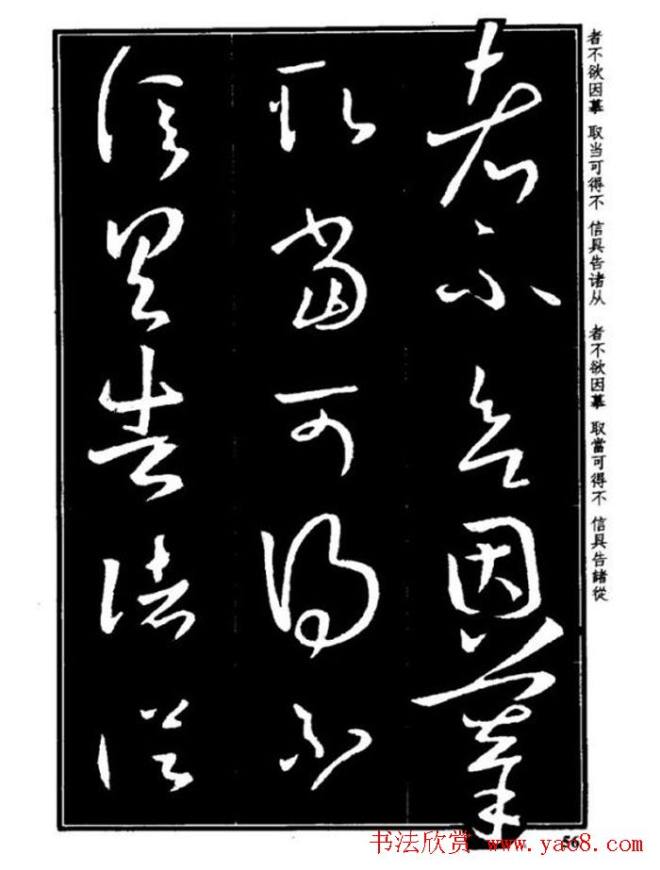 者不欲因摹
取當可得不
信具告諸從
者不欲因摹 取当可得不 信具告诸从 者不欲因摹 取當可得不 信具告諸從
56
书法欣赏 www.yac8.com